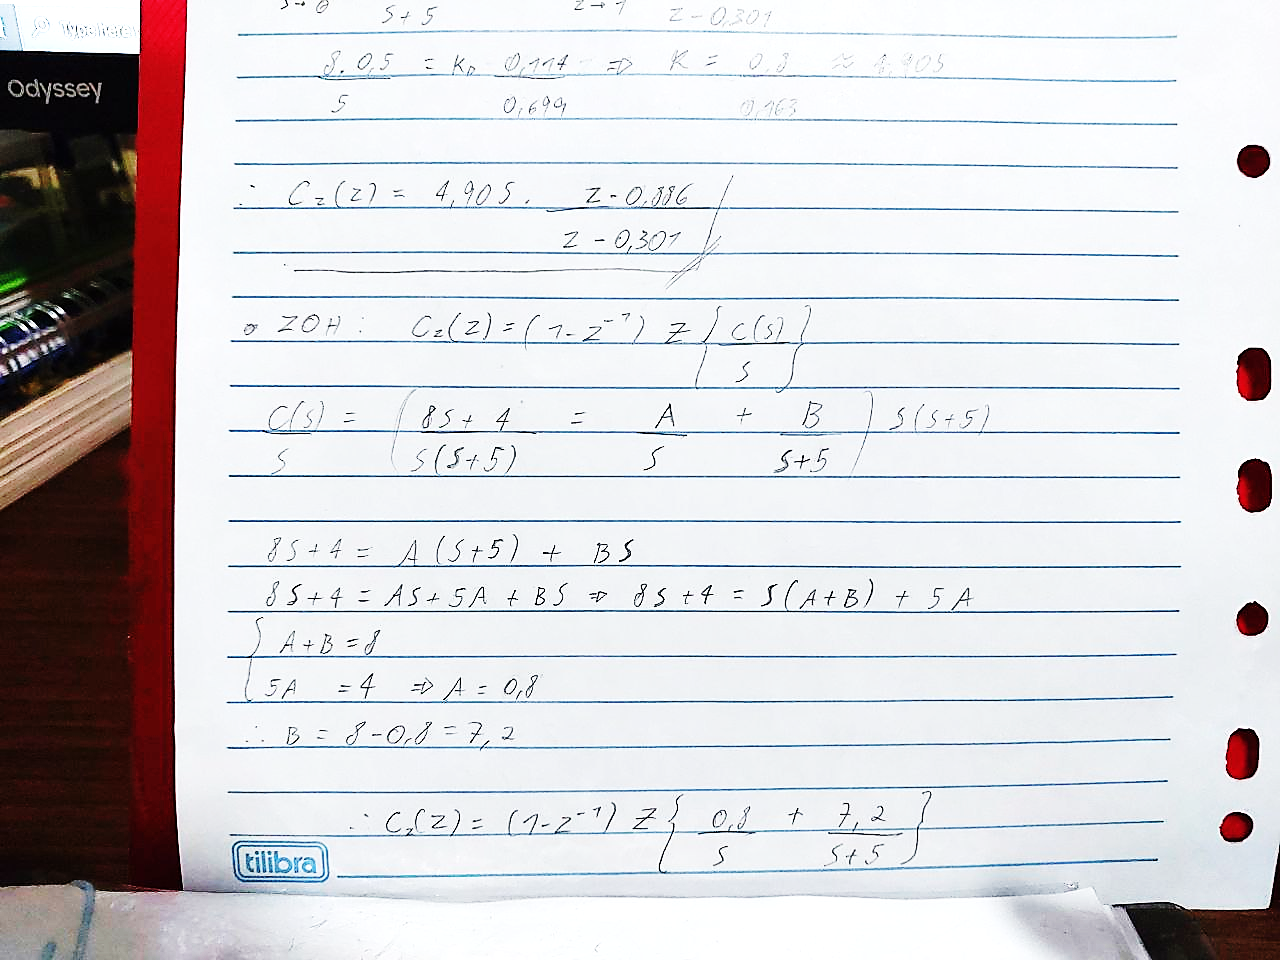 Odyssey
s→0 s+5 z→1 z-0,301
8.0,5 = Kp 0,114 ⇒ K = 0,8 ≈ 4,905
5 0,699 0,163
∴ C₂(z) = 4,905. z-0,886
z-0,301
• ZOH: C₂(z) = (1-z⁻¹) Z { C(s)
s }
C(s) = ( 8s+4 = A + B ) s(s+5)
s s(s+5) s s+5
8s+4 = A(s+5) + Bs
8s+4 = As+5A + Bs ⇒ 8s+4 = s(A+B) + 5A
{ A+B = 8
5A = 4 ⇒ A = 0,8
∴ B = 8-0,8 = 7,2
∴ C₂(z) = (1-z⁻¹) Z { 0,8 + 7,2 }
s s+5
tilibra